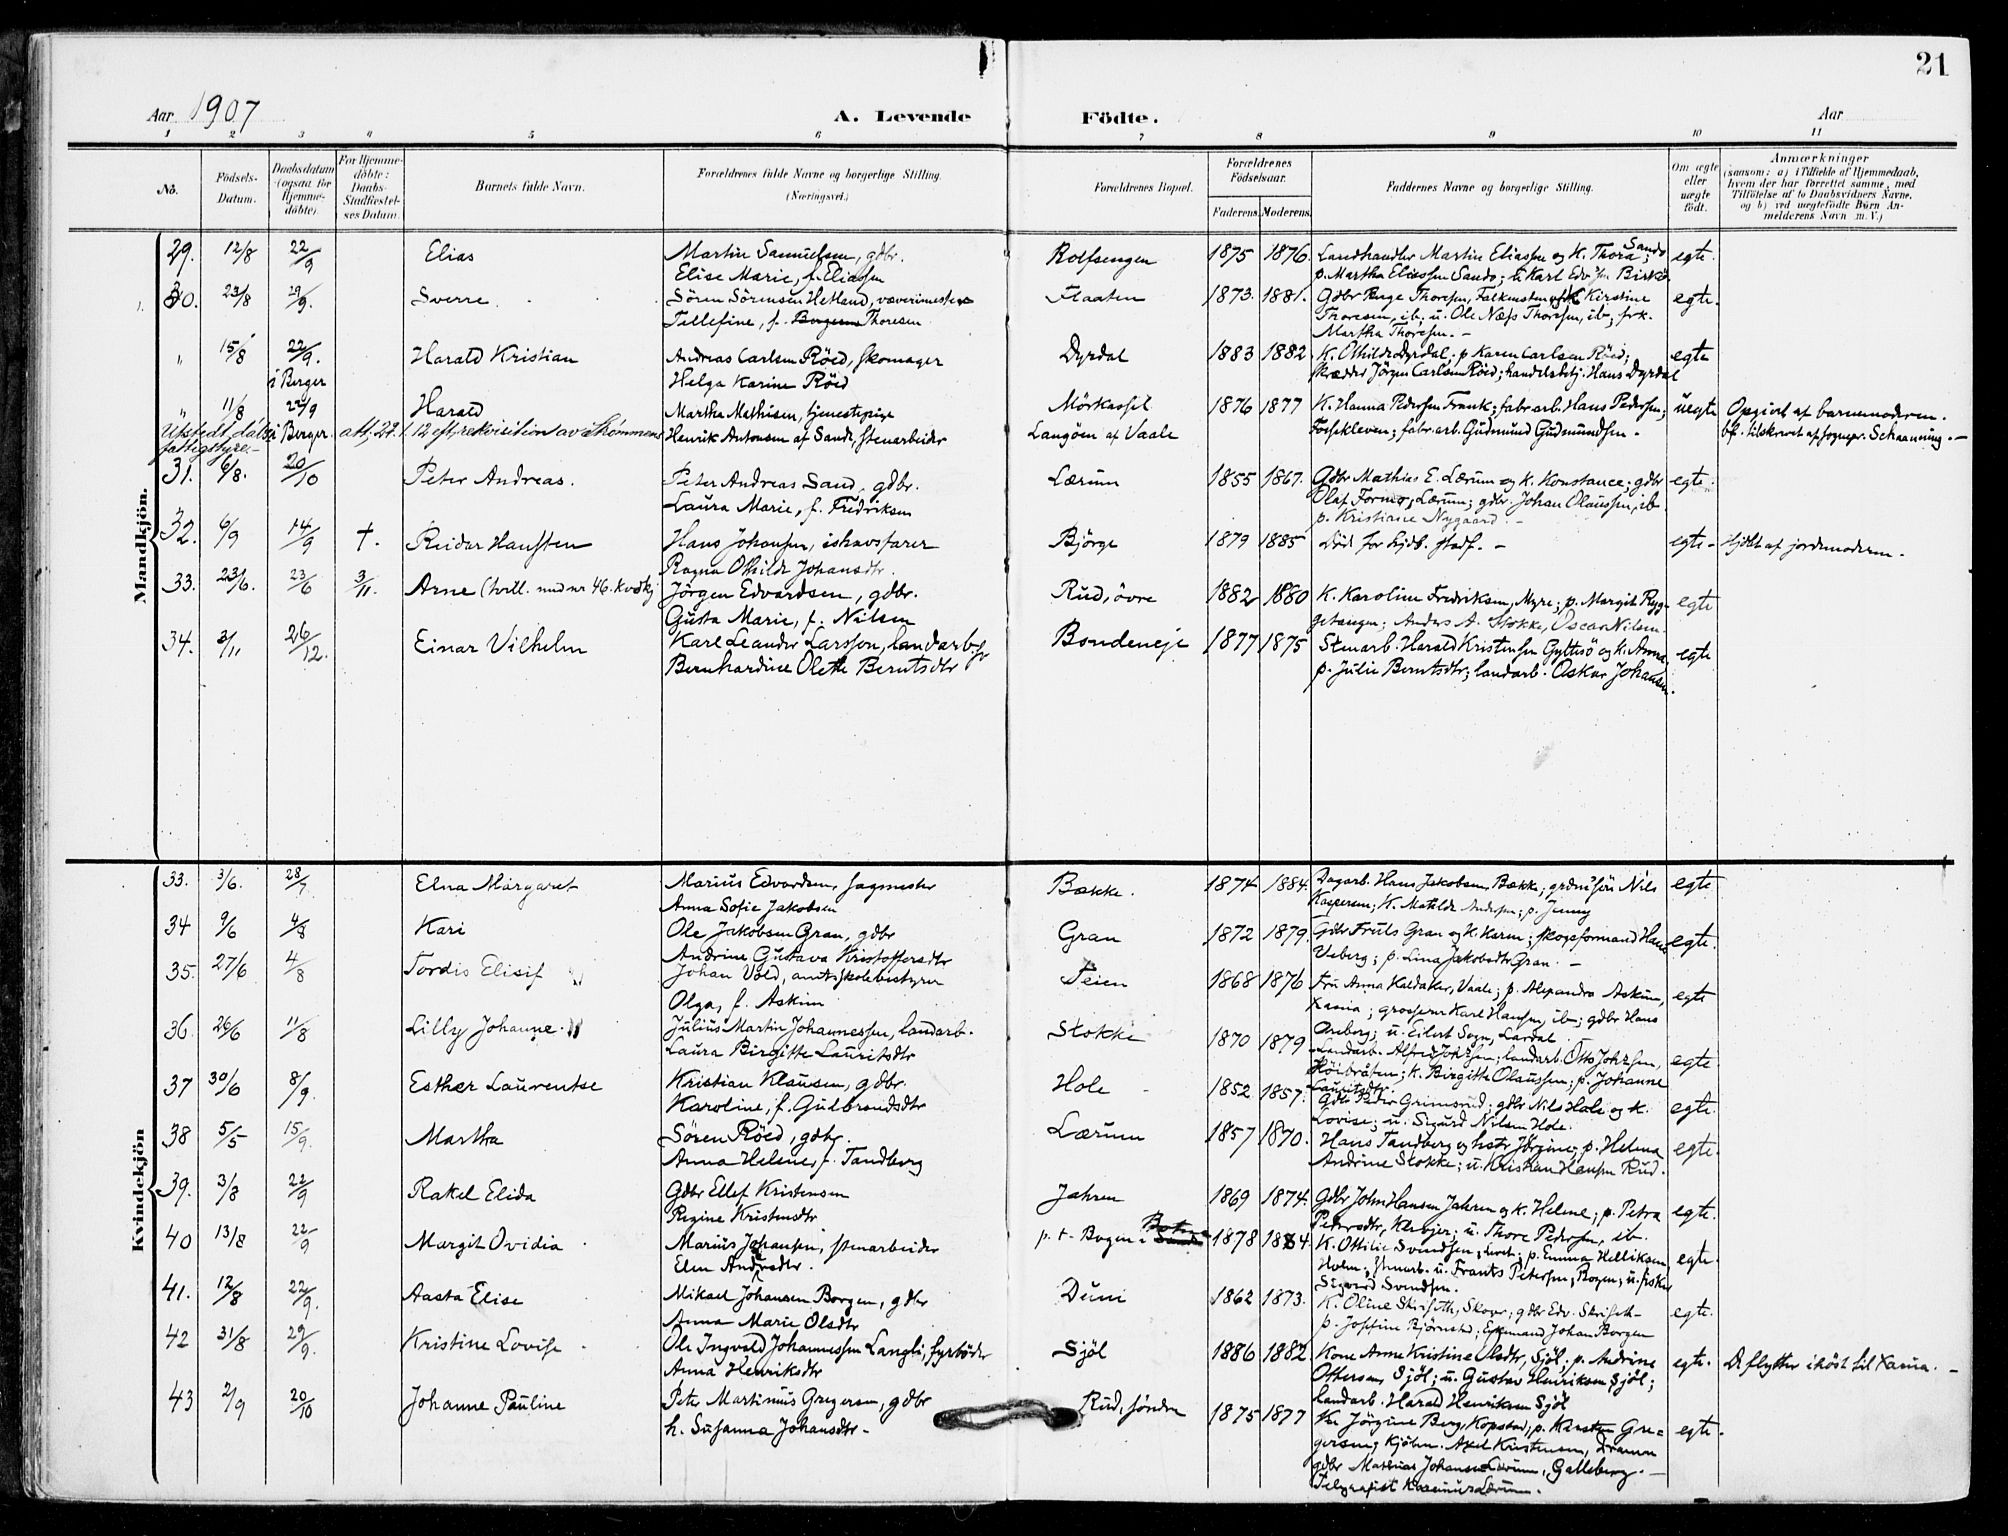 21
Aar 1907
A. Levende Födte.
Aar
1 2 3 4 5 6 7 8 9 10 11
No.
Födsels-Datum.
Daabsdatum (ogsaa for Hjemmedöbte).
For Hjemmedöbte: Daabs-Stadfæstelses Datum.
Barnets fulde Navn.
Forældrenes fulde Navne og borgerlige Stilling. (Næringsvei.)
Forældrenes Bopæl.
Forældrenes Födselsaar.
Faderens. Moderens.
Faddernes Navne og borgerlige Stilling.
Om ægte eller uægte födt.
Anmærkninger
(saasom: a) i Tilfælde af Hjemmedaab, hvem der har forrettet samme, med Tilföielse af to Daabsvidners Navne, og b) ved uægtefödte Börn Anmelderens Navn m. V.)
Mandkjön.
29. 12/8 22/9 Elias Martin Samuelsen, gdbr. Rolfsengen 1875 1876. Landhandler Martin Eliassen og K. Thora Sande; egte.
Elise Marie, f. Eliassen p. Martha Eliassen Sande; u. Karl Edv.
30. 23/8 29/9. Sverre Sören Sörensen Hetland, væverimester Flaaten 1873. 1881. Gdbr Berge Thoresen, Falkensten og K Kirstine egte.
Tellefine, f. Thoresen Thoresen, ib; u. Ole Næss Thoresen, ib; frk.
Martha Thoresen. -
" 15/8 22/9. Harald Kristian Andreas Carlsen Röed, skomager Dyrdal 1883 1882 K. Othilde Dyrdal; p Karen Carlsen Röed; egte
i Berger Helga Karine Röed skrædder Jörgen Carlsen Röed; handelsbetj. Hans Dyrdal
11/8 22/9 Harald Martha Mathisen, tjenestepige Mörkassel 1876 1877 K. Hanna Pedersen Frank; fabr.arb. Hans Pedersen; uegte Opgivet af barnemoderen.
i Berger Henrik Antonsen af Sande, stenarbeider Langöen af Vaale Fossekleven; fabr.arb. Gudmund Gudmundsen. bf. tilskrevet af sognepr. Schaanning. -
Utstedt dåbs att. 29. 12 eft. rekvisition av Skömmens
fattigstyre. -
31. 6/8. 20/10 Peter Andreas. Peter Andreas Sand, gdbr. Lærum 1855 1867. Gdbr Mathias E. Lærum og K. Konstance; gdbr egte.
Laura Marie, f. Fredriksen Olaf Formo, Lærum; gdbr. Johan Olaussen, ib
p. Kristiane Nygaard. -
32. 6/9 14/9 †. Reidar Hansten Hans Johansen, ishavsfarer Björge 1879 1885 Död for hjdb. stadf. - egte - Hjdbt af jordemoderen. -
Ragna Othilde Johansdtr.
33. 23/6. 23/6 3/11. Arne (tvill. med nr 46. kvdkj Jörgen Edvardsen, gdbr. Rud, övre 1882 1880 K. Karoline Fredriksen, Myre; p. Margit Ryg- egte
Gusta Marie, f. Nilsen getangen; Anders A. Stokke, Oscar Nilsen.
34. 3/11 26/12. Einar Vilhelm Karl Leander Larsson, landarb. Bondeneje 1877 1875 Stenarb. Harald Kristensen Gyltesö og K. Anna; egte
Bernhardine Olette Berntsdtr p. Julie Berntsdtr; landarb. Oskar Johansen.
Kvindekjön
33. 3/6. 28/7. Elna Margaret Marius Edvardsen, sagmester Bække. 1874 1884. Dagarb. Hans Jakobsen, Bække; Nils egte
Anna Sofie Jakobsen Kaspersen; K. Matilde Andersen; p. Jenny
34 9/6 4/8 Kari Ole Jakobsen Gran, gdbr Gran 1872 1879. Gdbr Fruls Gran og K. Karen; skogsformand Hans egte.
Andrine Gustava Kristoffersdtr Veberg; p. Lina Jakobsdtr Gran. -
35. 27/6 4/8 Tordis Elisif Johan Vold, amtsskolebestyrer Teien 1868 1876 Fru Anna Kaldaker, Vaale; p. Alexandra Askim, egte
Olga, f. Askim Xania; grosserer Karl Hansen, ib; gdbr Hans
Areberg; u. Eilert Sogn, Lardal
36. 26/6 11/8 Lilly Johanne Julius Martin Johannessen, landarb. Stokke 1870 1879 Landarb. Alfred Johssen; landarb. Otto Johssen, egte.
Laura Birgitte Lauritsdtr Höibråten; K. Birgitte Olaussen; p. Johanne
Lauritsdtr.
37 30/6 8/9. Esther Laurentse Kristian Klausen, gdbr. Hole 1852 1857. Gdbr Peder Grimsrud; gdbr Nils Hole og K. egte.
Karoline, f. Gulbrandsdtr Lovise; u. Sigurd Nilsen Hole.
38 5/5 15/9. Martha Sören Röed, gdbr. Lærum 1857 1870. Hans Tandberg og hstr Jörgine; p. Helma egte.
Anna Helene, f. Tandberg Andrine Stokke; u. Kristian Hansen Rud.
39. 3/8 22/9 Rakel Elida Gdbr Ellef Kristensen Jahren 1869 1874. Gdbr John Hansen Jahren og K. Helene; p. Petra egte.
Regine Kristensdtr Pedersdtr, ; u. Thore Pedersen, ib.
40 13/8 22/9 Margit Ovidia Marius Johansen, stenarbeider p. t. Bogen i 1878 1884. K. Ottilie Svendsen; p. Emma Helliksen egte.
Elen Andrsdtr. Holm; stenarb. u. Frants Petersen, Bogen; u. fisker
Sigvard Svendsen.
41. 12/8 22/9. Aasta Elise Mikael Johansen Borgen, gdbr Duni 1862 1873. K. Oline Skirseth, Skovr; gdbr Edv. Skirseth egte.
Anna Marie Olsdtr p. Josefine Björnstad; Johan Borgen
42 31/8 29/9. Kristine Lovise Ole Ingvald Johannessen Langli, fyrböder Sjöl 1886 1882 Kone Anne Kristine Olsdtr, Sjöl; p. Andrine egte. De flytter i höst til Xania. -
Anna Henriksdtr Ottersen, Sjöl; u. Gustav Henriksen Sjöl;
landarb. Harald Henriksen Sjöl
43 2/9 20/10 Johanne Pauline Peter Martinius Gregersen, gdbr Rud, söndre 1875 1877 Ke Jörgine Berg, Kopstad; p. Karsten Gre- egte.
h. Susanna Johansdtr - gersen; kjöbm. Axel Kristensen, Dramn
gdbr Mathias Johansen Lærum, Galleberg. -
Telegrafist Rasmus Lærum.